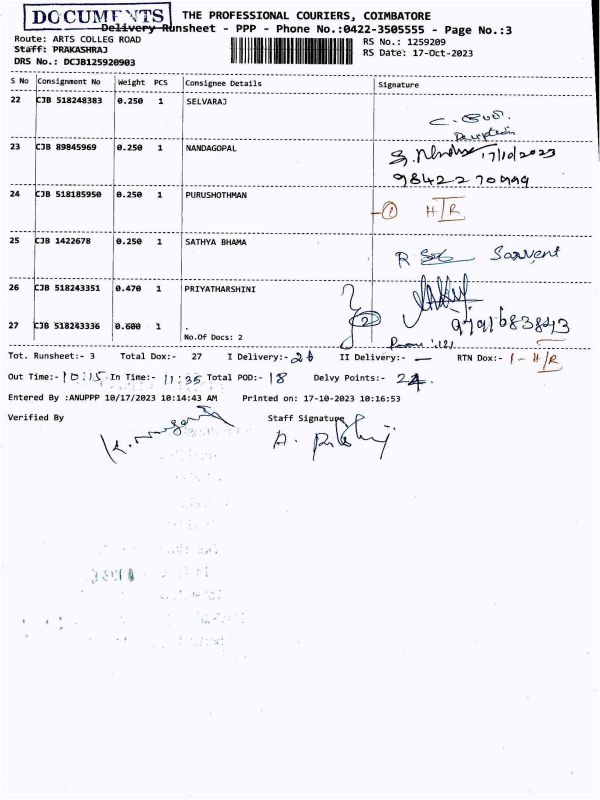 DOCUMENTS
THE PROFESSIONAL COURIERS, COIMBATORE
Delivery Runsheet - PPP - Phone No.:0422-3505555 - Page No.:3
Route: ARTS COLLEG ROAD
RS No.: 1259209
Staff: PRAKASHRAJ
RS Date: 17-Oct-2023
DRS No.: DCJB125920903
S No Consignment No Weight PCS Consignee Details Signature
22 CJB 518248383 0.250 1 SELVARAJ
23 CJB 89845969 0.250 1 NANDAGOPAL
17/10/2023
24 CJB 518185950 0.250 1 PURUSHOTHMAN
1 H/R
25 CJB 1422678 0.250 1 SATHYA BHAMA
Sarvent
26 CJB 518243351 0.470 1 PRIYATHARSHINI
2
27 CJB 518243336 0.600 1 .
No.Of Docs: 2
Tot. Runsheet:- 3 Total Dox:- 27 I Delivery:- 26 II Delivery:- — RTN Dox:- 1 - H/R
Out Time:- 10:15 In Time:- 11:35 Total POD:- 18 Delvy Points:- 24
Entered By :ANUPPP 10/17/2023 10:14:43 AM Printed on: 17-10-2023 10:16:53
Verified By Staff Signature